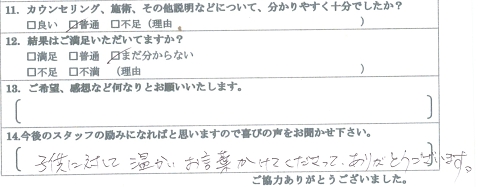 11. カウンセリング、施術、その他説明などについて、分かりやすく十分でしたか？
□良い ☑普通 □不足（理由 ）
12. 結果はご満足いただいてますか？
□満足 □普通 ☑まだ分からない
□不足 □不満 （理由 ）
13. ご希望、感想など何なりとお願いいたします。
14.今後のスタッフの励みになればと思いますので喜びの声をお聞かせ下さい。
子供に対して 温かい お言葉 かけてくださって、ありがとうございます。
ご協力ありがとうございました。